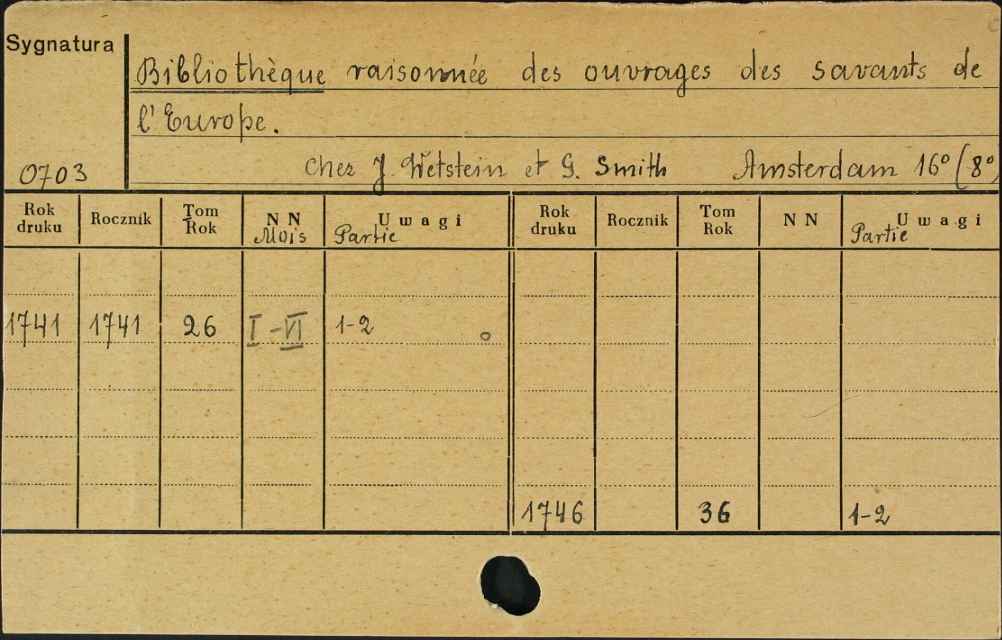 Sygnatura
Bibliothèque raisonnée des ouvrages des savants de
l'Europe.
0703
Chez J. Wetstein et G. Smith Amsterdam 16° (8°)
Rok druku Rocznik Tom Rok NN Mois Uwagi Partie Rok druku Rocznik Tom Rok NN Uwagi Partie
1741 1741 26 I-VI 1-2
1746 36 1-2